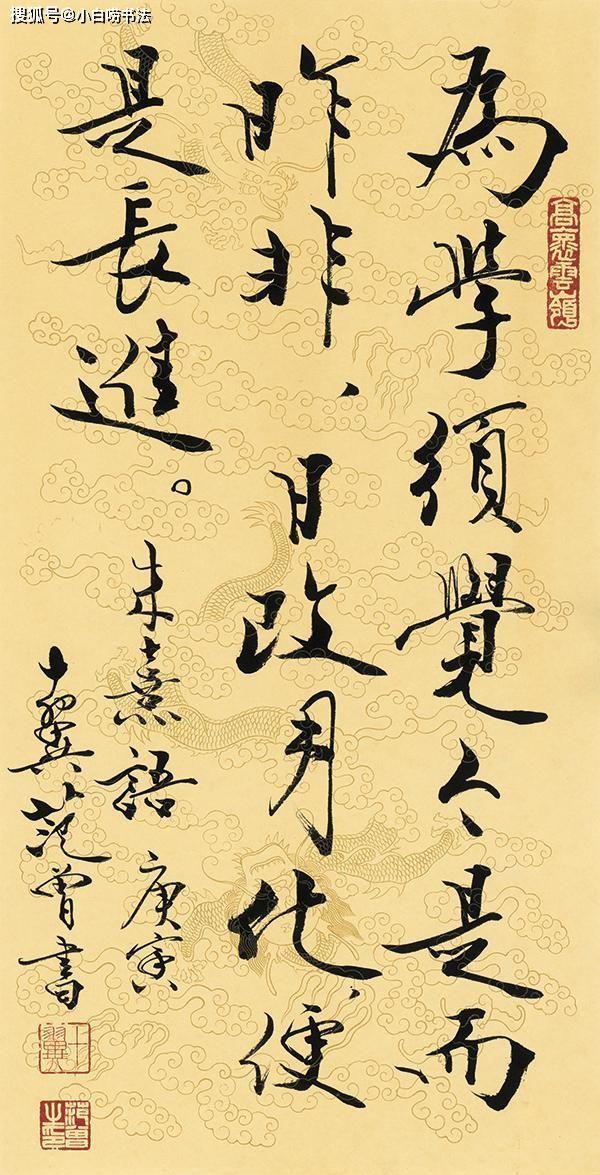 搜狐号@小白唠书法
為學須覺今是而
昨非、日改月化便
是長進。
朱熹語 庚寅
十翼范曾書
十翼
范曾之印